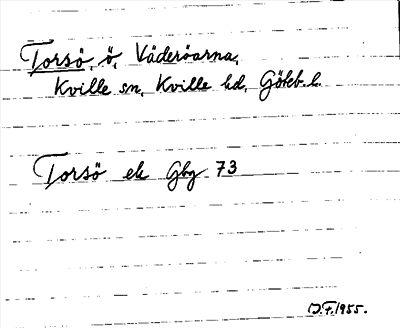 Torsö, ö, Väderöarna,
Kville sn, Kville hd, Göteb. l.
Torsö ek Gbg 73
D.F. 1955.